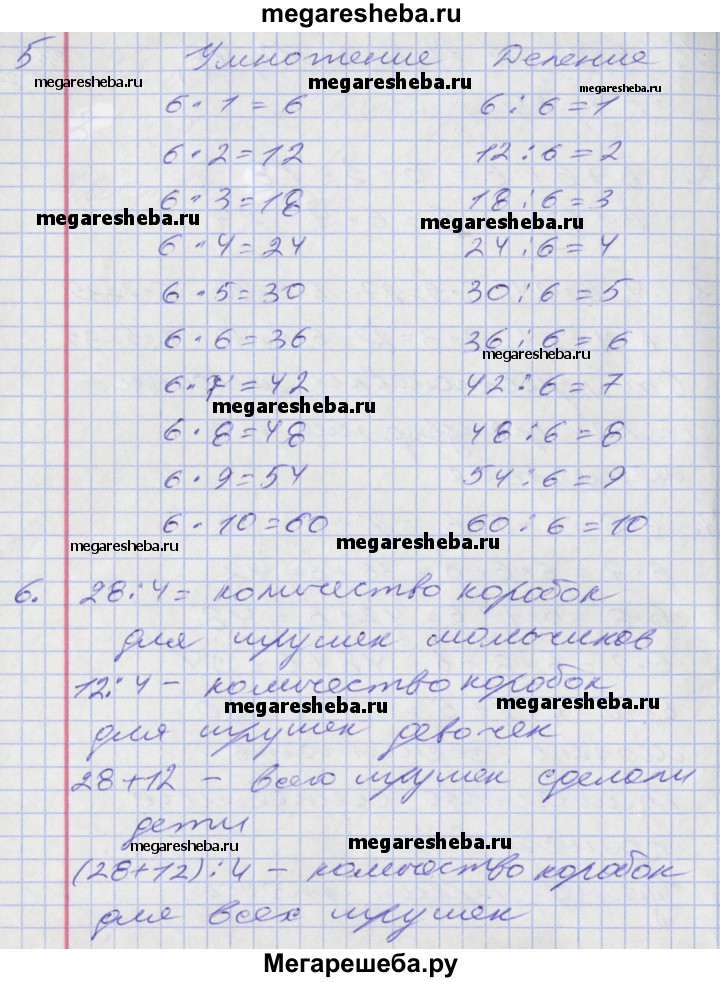 megaresheba.ru
5 Умножение Деление
megaresheba.ru megaresheba.ru megaresheba.ru
6 · 1 = 6 6 : 6 = 1
6 · 2 = 12 12 : 6 = 2
6 · 3 = 18 18 : 6 = 3
megaresheba.ru megaresheba.ru
6 · 4 = 24 24 : 6 = 4
6 · 5 = 30 30 : 6 = 5
6 · 6 = 36 36 : 6 = 6
megaresheba.ru
6 · 7 = 42 42 : 6 = 7
megaresheba.ru
6 · 8 = 48 48 : 6 = 8
6 · 9 = 54 54 : 6 = 9
6 · 10 = 60 60 : 6 = 10
megaresheba.ru megaresheba.ru
6. 28 : 4 = количество коробок
для игрушек мальчиков
12 : 4 – количество коробок
megaresheba.ru megaresheba.ru
для игрушек девочек
28 + 12 – всего игрушек сделали
дети
megaresheba.ru megaresheba.ru
(28 + 12) : 4 – количество коробок
для всех игрушек
Мегарешеба.ру